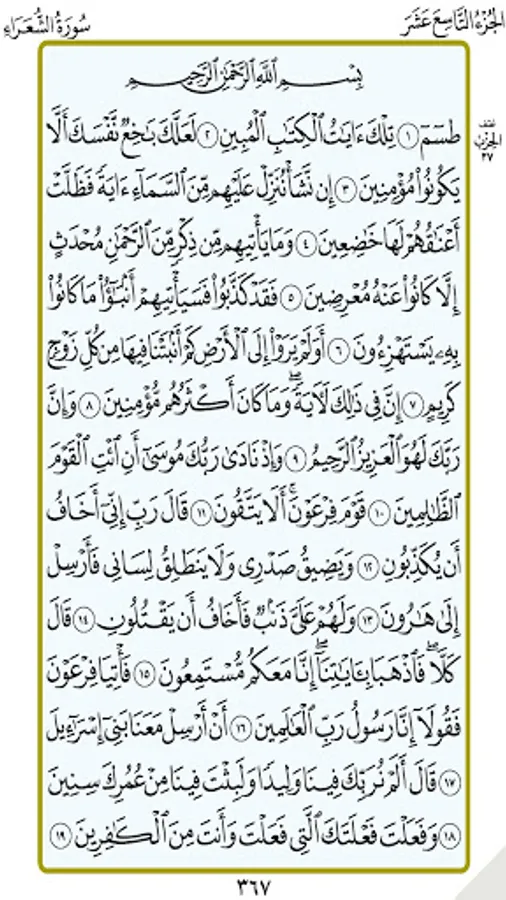 الجُزْءُ التَّاسِعَ عَشَرَ
سُورَةُ الشُّعَرَاءِ
بِسْمِ اللَّهِ الرَّحْمَٰنِ الرَّحِيمِ
نصف
الحِزْب
٣٧
طسٓمٓ ١ تِلْكَ ءَايَٰتُ ٱلْكِتَٰبِ ٱلْمُبِينِ ٢ لَعَلَّكَ بَٰخِعٌ نَّفْسَكَ أَلَّا
يَكُونُوا۟ مُؤْمِنِينَ ٣ إِن نَّشَأْ نُنَزِّلْ عَلَيْهِم مِّنَ ٱلسَّمَآءِ ءَايَةً فَظَلَّتْ
أَعْنَٰقُهُمْ لَهَا خَٰضِعِينَ ٤ وَمَا يَأْتِيهِم مِّن ذِكْرٍ مِّنَ ٱلرَّحْمَٰنِ مُحْدَثٍ
إِلَّا كَانُوا۟ عَنْهُ مُعْرِضِينَ ٥ فَقَدْ كَذَّبُوا۟ فَسَيَأْتِيهِمْ أَنۢبَٰٓؤُا۟ مَا كَانُوا۟
بِهِۦ يَسْتَهْزِءُونَ ٦ أَوَلَمْ يَرَوْا۟ إِلَى ٱلْأَرْضِ كَمْ أَنۢبَتْنَا فِيهَا مِن كُلِّ زَوْجٍ
كَرِيمٍ ٧ إِنَّ فِى ذَٰلِكَ لَءَايَةً ۖ وَمَا كَانَ أَكْثَرُهُم مُّؤْمِنِينَ ٨ وَإِنَّ
رَبَّكَ لَهُوَ ٱلْعَزِيزُ ٱلرَّحِيمُ ٩ وَإِذْ نَادَىٰ رَبُّكَ مُوسَىٰٓ أَنِ ٱئْتِ ٱلْقَوْمَ
ٱلظَّٰلِمِينَ ١٠ قَوْمَ فِرْعَوْنَ ۚ أَلَا يَتَّقُونَ ١١ قَالَ رَبِّ إِنِّىٓ أَخَافُ
أَن يُكَذِّبُونِ ١٢ وَيَضِيقُ صَدْرِى وَلَا يَنطَلِقُ لِسَانِى فَأَرْسِلْ
إِلَىٰ هَٰرُونَ ١٣ وَلَهُمْ عَلَىَّ ذَنۢبٌ فَأَخَافُ أَن يَقْتُلُونِ ١٤ قَالَ
كَلَّا ۖ فَٱذْهَبَا بِـَٔايَٰتِنَآ ۖ إِنَّا مَعَكُم مُّسْتَمِعُونَ ١٥ فَأْتِيَا فِرْعَوْنَ
فَقُولَآ إِنَّا رَسُولُ رَبِّ ٱلْعَٰلَمِينَ ١٦ أَنْ أَرْسِلْ مَعَنَا بَنِىٓ إِسْرَٰٓءِيلَ
١٧ قَالَ أَلَمْ نُرَبِّكَ فِينَا وَلِيدًا وَلَبِثْتَ فِينَا مِنْ عُمُرِكَ سِنِينَ
١٨ وَفَعَلْتَ فَعْلَتَكَ ٱلَّتِى فَعَلْتَ وَأَنتَ مِنَ ٱلْكَٰفِرِينَ ١٩
٣٦٧